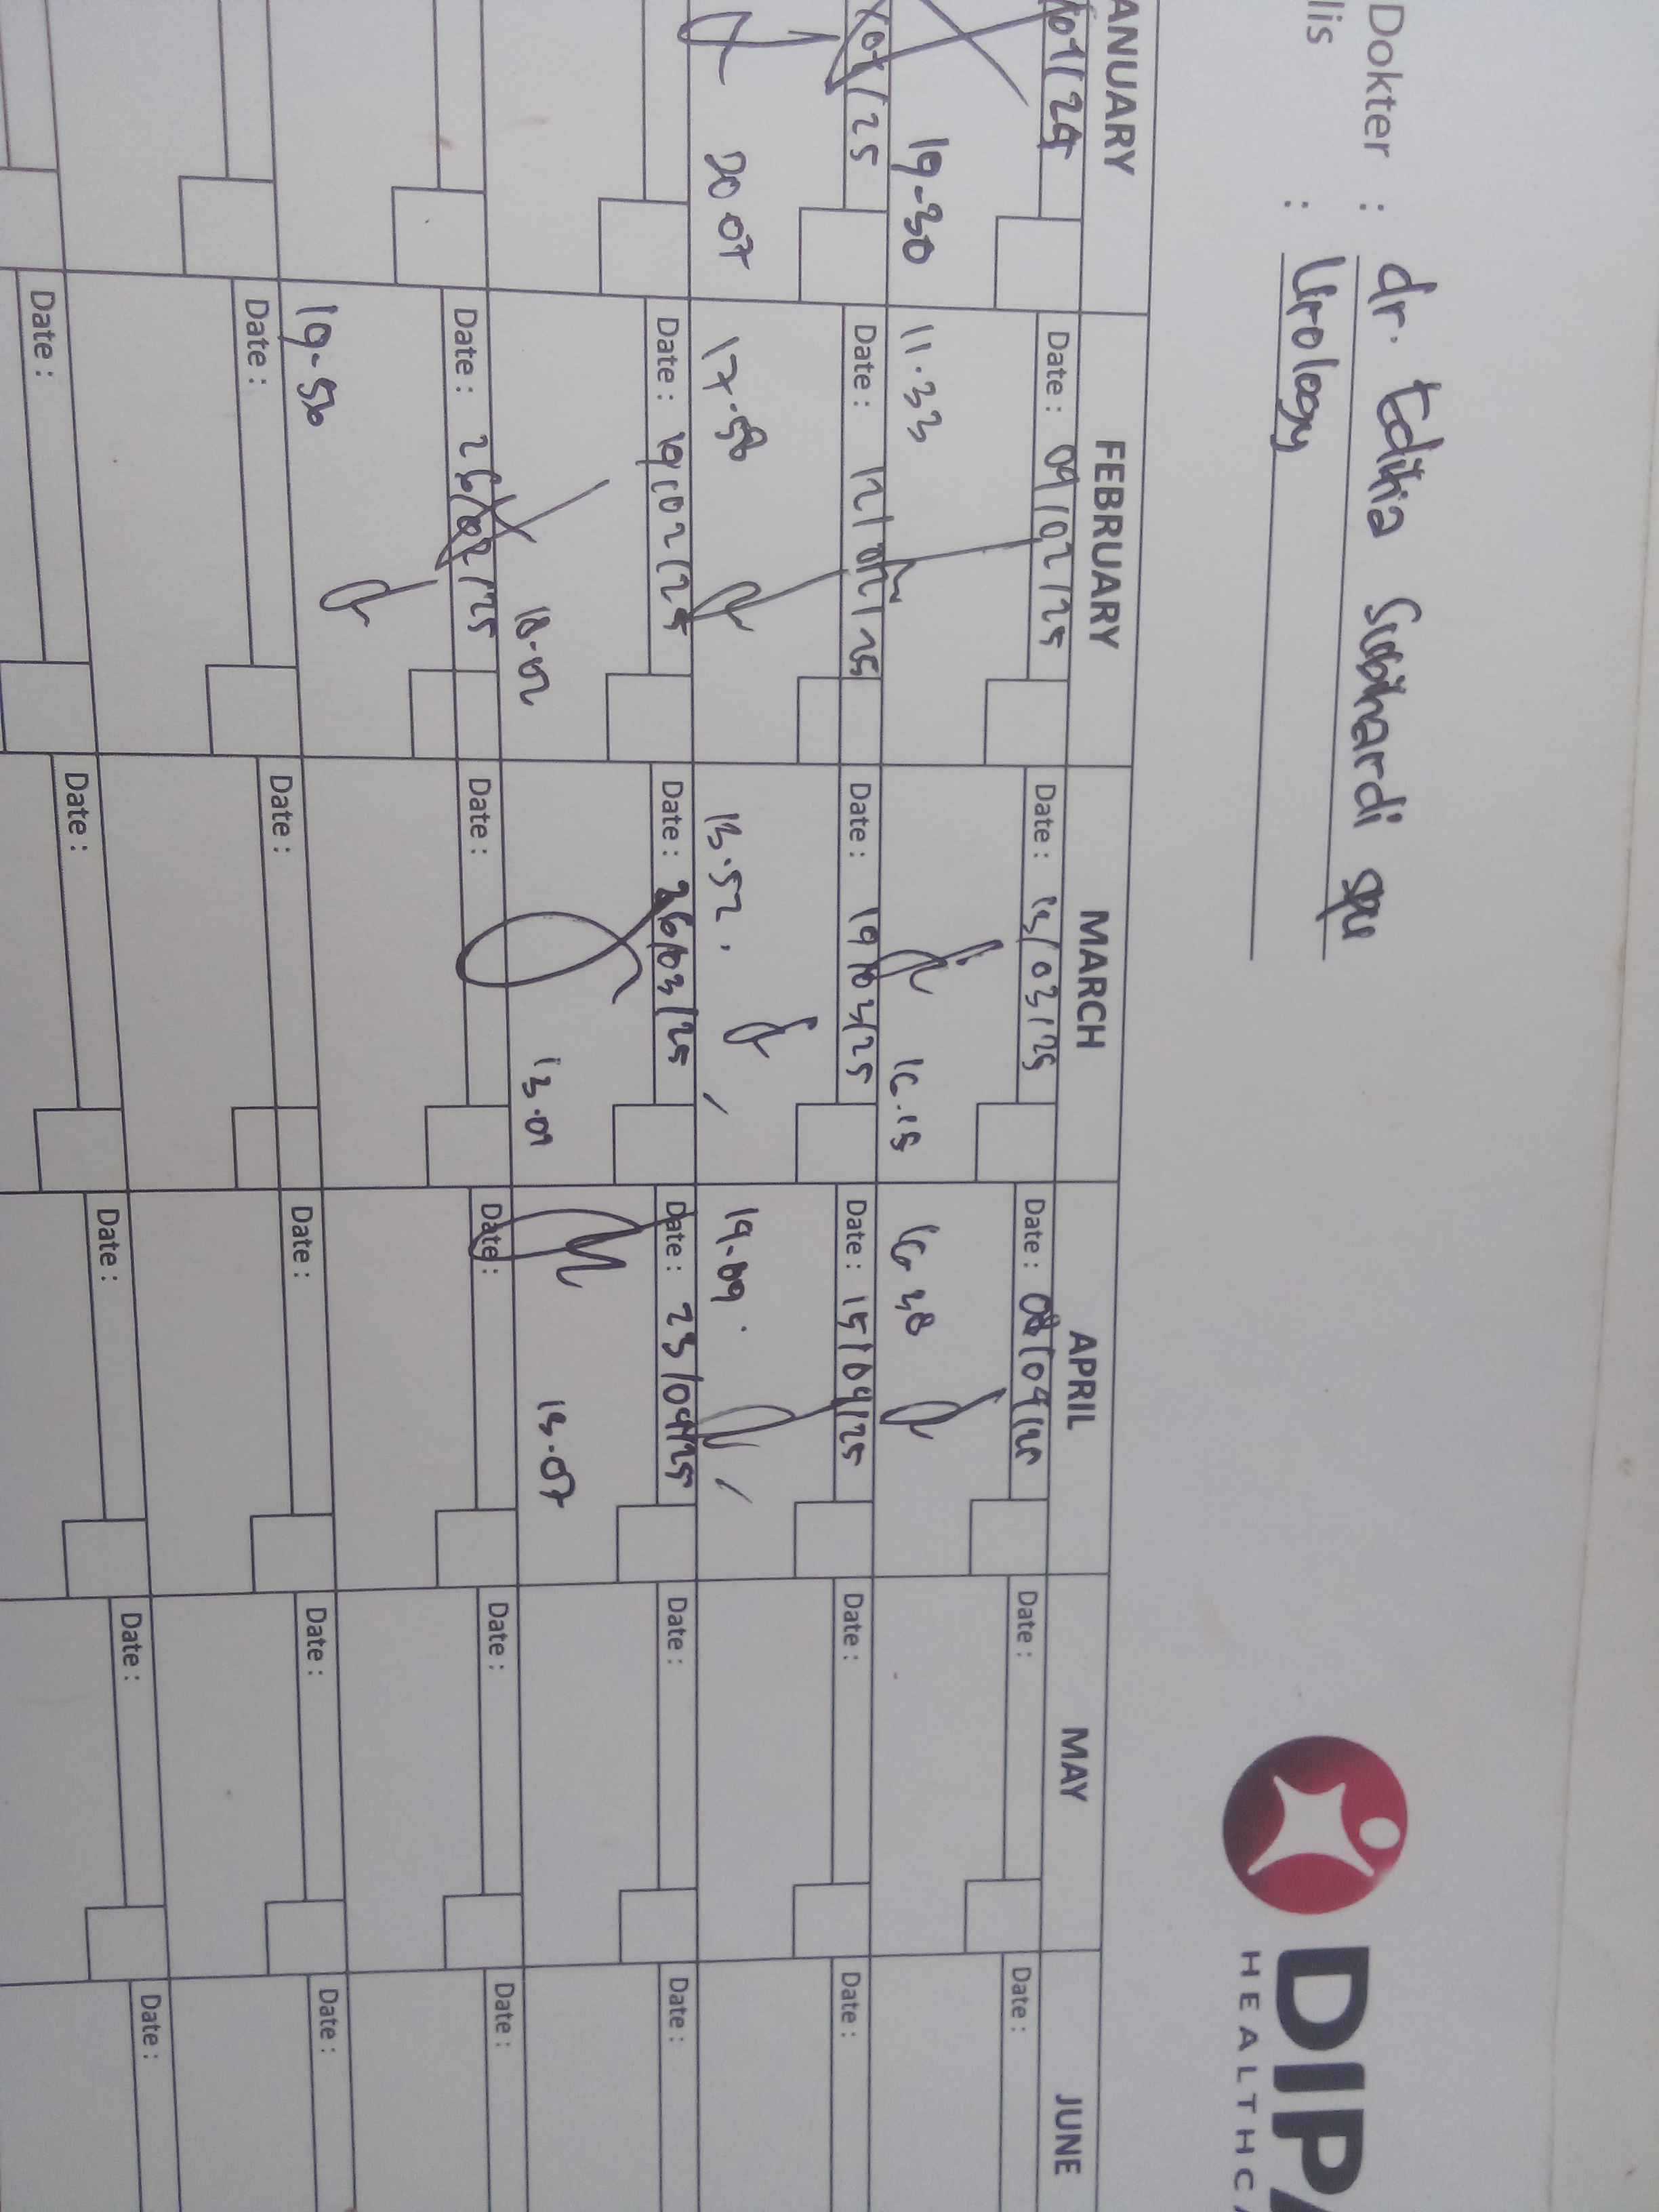 Dokter : dr. Editia Susihardi
lis : Urology
DIPA
HEALTHCA
ANUARY FEBRUARY MARCH APRIL MAY JUNE
01/24 Date : 09/02/25 Date : 13/03/25 Date : 08/04/25 Date : Date :
19-30 11.33 16.15 16.38
01/25 Date : 12/02/25 Date : 19/03/25 Date : 15/04/25 Date : Date :
20.07 17.58 13.52. 19.09.
Date : 19/02/25 Date : 26/03/25 Date : 23/04/25 Date : Date :
18.02 13.01 13.07
Date : 26/02/25 Date : Date : Date : Date :
19-56
Date : Date : Date : Date : Date :
Date : Date : Date : Date : Date :